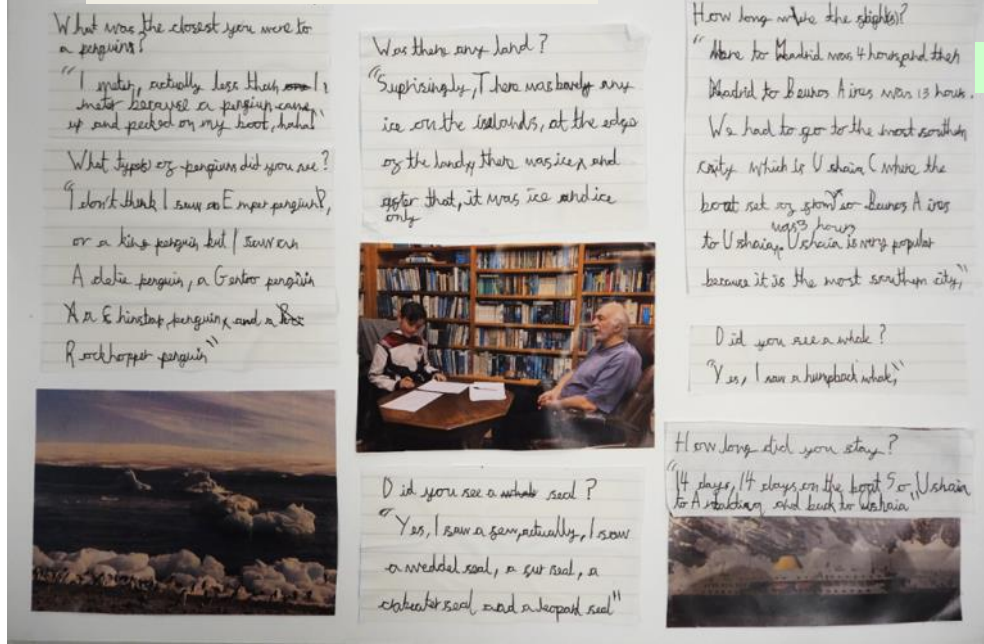 What was the closest you were to
a penguins?
"1 meter, actually less than 1
meter because a penguin came
up and pecked on my boot, haha"
What types of penguins did you see?
"I don't think I saw an Emper penguin,
or a king penguin but I saw an
Adelie penguin, a Gentoo penguin
a Chinstrap penguin, and a
Rockhopper penguin"
Was there any land?
"Suprisingly, There was barely any
ice on the iselands, at the edge
of the land, there was ice, and
after that, it was ice and ice
only
Did you see a whale seal?
"Yes, I saw a few, actually, I saw
a weddel seal, a fur seal, a
crabeater seal and a leopard seal"
How long where the flight(s)?
"Here to Madrid was 4 hours, and then
Madrid to Beunos Aires was 13 hours.
We had to go to the most southern
city which is Ushaia (where the
boat set of from) so Beunos Aires
was 3 hours
to Ushaia, Ushaia is very popular
because it is the most southern city,"
Did you see a whale?
"Yes, I saw a humpback whale,"
How long did you stay?
"14 days, 14 days on the boat So, Ushaia
to and back to Ushaia"